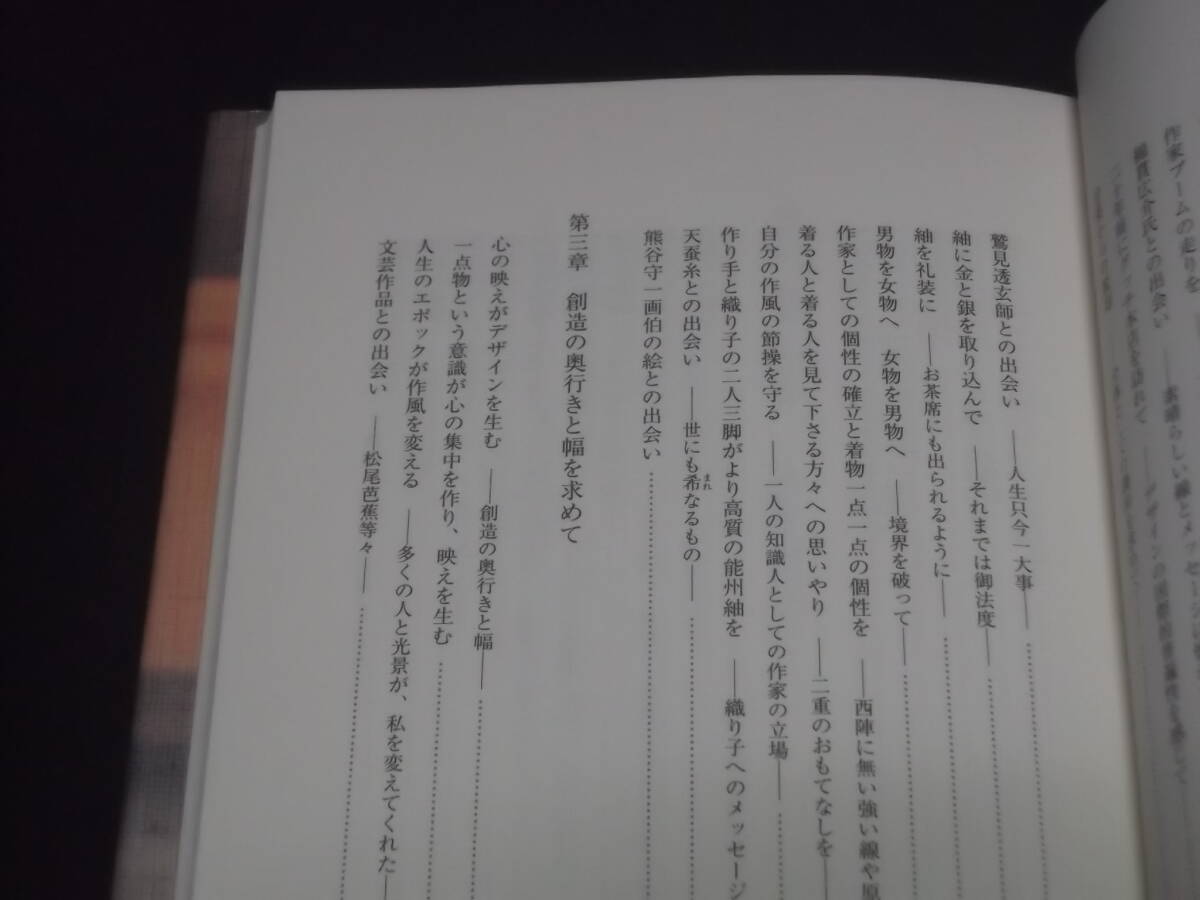 作家ブームの走りを
鷲見透玄師との出会い ――人生只今一大事――
紬に金と銀を取り込んで ――それまでは御法度――
紬を礼装に ――お茶席にも出られるように――
男物を女物へ 女物を男物へ ――境界を破って――
作家としての個性の確立と着物一点一点の個性を ――西陣に無い強い線や原
着る人と着る人を見て下さる方々への思いやり ――二重のおもてなしを――
自分の作風の節操を守る ――一人の知識人としての作家の立場――
作り手と織り子の二人三脚がより高質の能州紬を ――織り子へのメッセージ
天蚕糸との出会い ――世にも希なるもの――
まれ
熊谷守一画伯の絵との出会い
第三章 創造の奥行きと幅を求めて
心の映えがデザインを生む ――創造の奥行きと幅――
一点物という意識が心の集中を作り、映えを生む
人生のエポックが作風を変える ――多くの人と光景が、私を変えてくれた――
文芸作品との出会い ――松尾芭蕉等々――